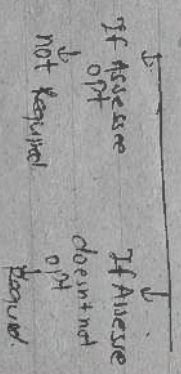 If Assesee
opt
not Required
If Assesse
doesnt not
opt
Required